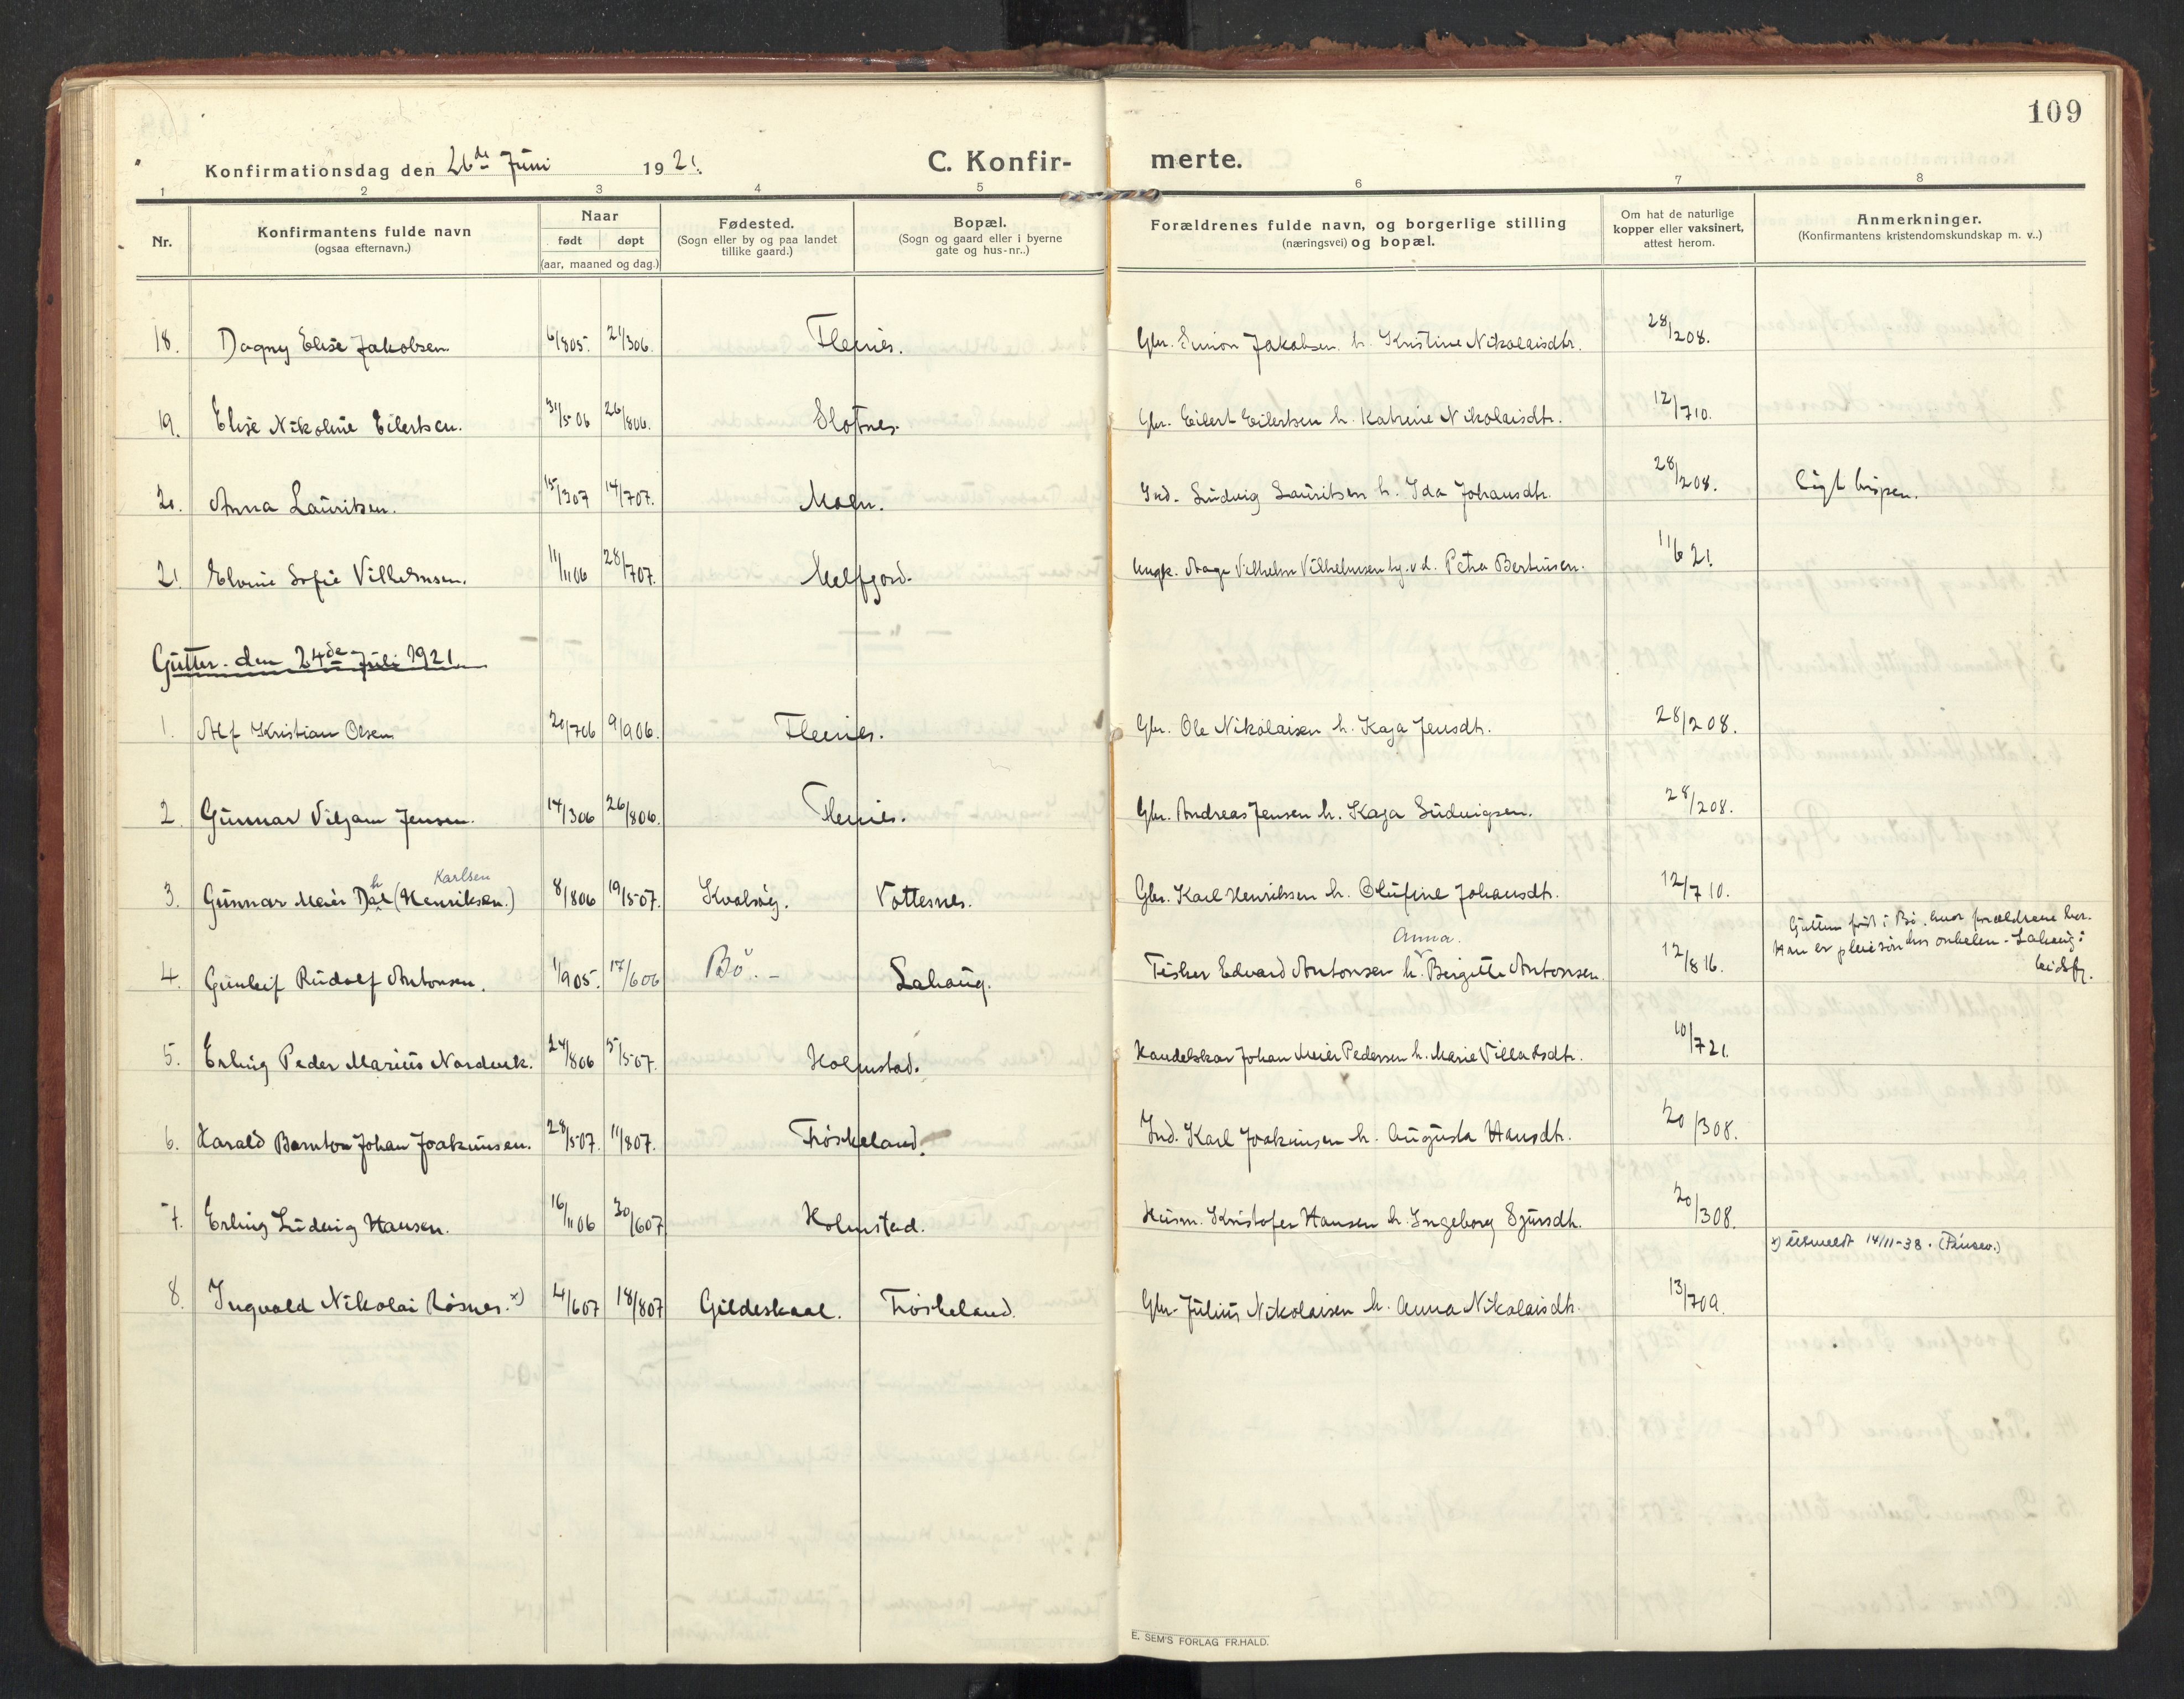 109
Konfirmationsdag den 26de Juni 1921.
C. Konfir- merte.
1 2 3 4 5 6 7 8
Nr.
Konfirmantens fulde navn
(ogsaa efternavn.)
Naar
født døpt
(aar, maaned og dag.)
Fødested.
(Sogn eller by og paa landet
tillike gaard.)
Bopæl.
(Sogn og gaard eller i byerne
gate og hus-nr..)
Forældrenes fulde navn, og borgerlige stilling
(næringsvei) og bopæl.
Om hat de naturlige
kopper eller vaksinert,
attest herom.
Anmerkninger.
(Konfirmantens kristendomskundskap m. v..)
18. Dagny Elise Jakobsen. 6/805. 21/306. Fleines. Gbr. Simon Jakobsen h. Kristine Nikolaisdtr. 28/208.
19. Elise Nikoline Eilertsen. 31/506 26/806. Slotnes. Gbr. Eilert Eilertsen h. Katrine Nikolaisdtr. 12/710.
20. Anna Lauritsen. 15/307 14/707. Moen. Ind. Ludvig Lauritsen h. Ida Johansdtr. 28/208.
21 Elvine Sofie Vilhelmsen. 11/1106 28/707. Melfjord. Ungk. Aage Vilhelm Vilhelmsen og v d. Petra Bertinsen. 11/621.
Gutter. den 24de Juli 1921
1. Alf Kristian Olsen 20/706 9/906. Fleines. Gbr. Ole Nikolaisen h. Kaja Jensdtr. 28/208.
2. Gunnar Viljam Jensen. 14/306 26/806. Fleines. Gbr. Andreas Jensen h. Kaja Ludvigsen. 28/208.
Karlsen
3. Gunnar Meier Dahl (Henriksen.) 8/806 19/507. Kvalsøy. Vottesnes. Gbr. Karl Henrikssen h. Olufine Johansdtr. 12/710.
Gutten født i Bø, hvor forældrene bor.
Anna.
Han er pleiesøn hos onkelen - Lahaug i
4. Gunleif Rudolf Antonsen. 1/905. 17/606 Bø. - Lahaug. Fisker Edvard Antonsen h. Birgitte Antonsen. 12/816.
5. Erling Peder Marius Nordvik. 24/806 5/507. Holmstad. Handelskar Johan Meier Pedersen h. Marie Villadsdtr. 10/721.
6. Harald Bernton Johan Joakimsen. 28/507. 11/807. Frøskeland. Ind. Karl Joakimsen h. Augusta Hansdtr. 20/308.
7. Erling Ludvig Hansen. 16/1106 30/607 Holmstad. Husm. Kristofer Hansen h. Ingeborg Sjursdtr. 20/308.
x) Utmeldt 14/11-38. (Pinsev.)
8. Ingvald Nikolai Røsnes. x) 4/607 18/807 Gildeskaal. Frøskeland. Gbr. Julius Nikolaisen h. Anna Nikolaisdtr. 13/709.
E. SEM'S FORLAG FR.HALD.